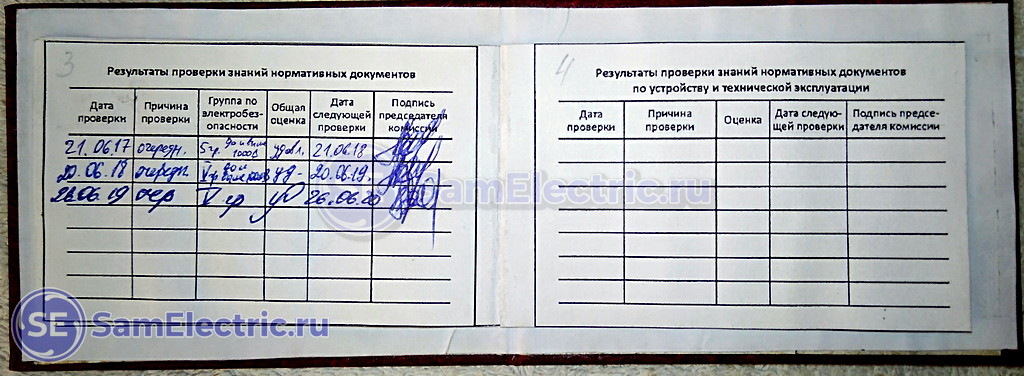 3
Результаты проверки знаний нормативных документов
Дата проверки
Причина проверки
Группа по электробез-опасности
Общая оценка
Дата следующей проверки
Подпись председателя комиссии
21.06.17 очередн. 5 гр. до и выше 1000В удовл. 21.06.18
20.06.18 очередн. V гр. до и выше 1000В уд- 20.06.19.
26.06.19 очер V гр уд 26.06.20
4
Результаты проверки знаний нормативных документов
по устройству и технической эксплуатации
Дата проверки
Причина проверки
Оценка
Дата следую-щей проверки
Подпись предсе-дателя комиссии
SamElectric.ru
SE SamElectric.ru